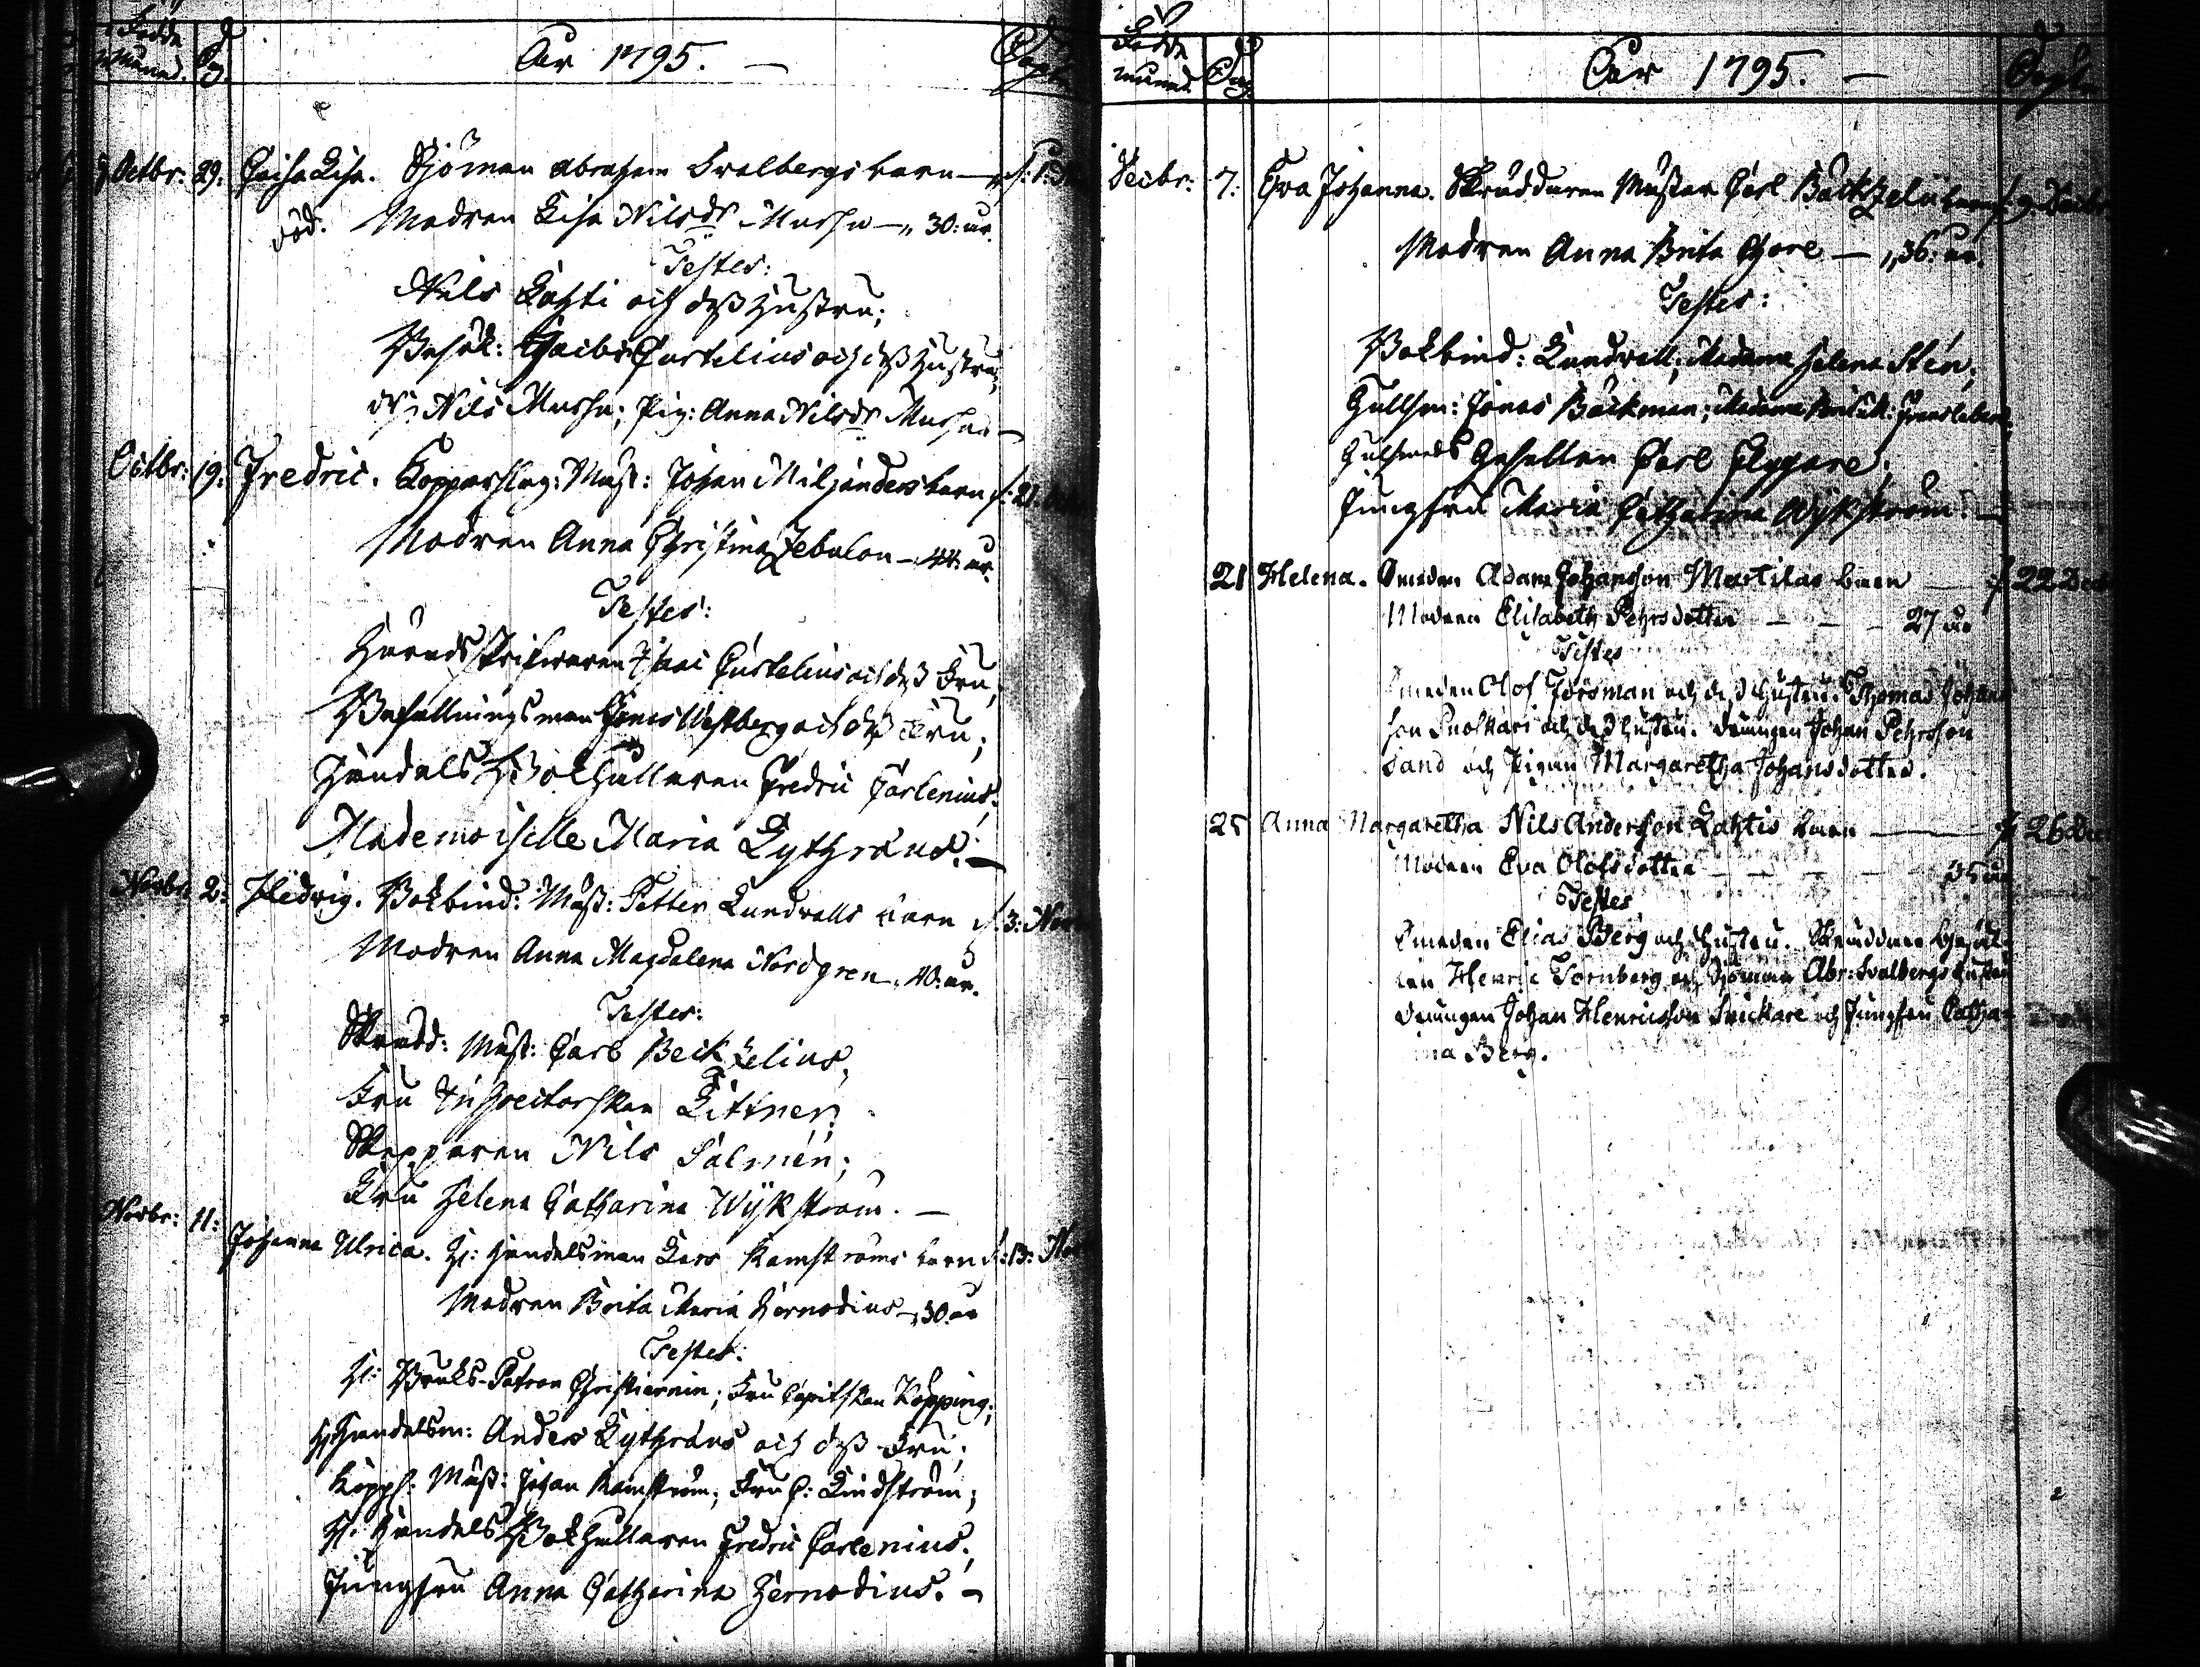 Födde
månad. Dag. Åar 1795. — Döpt.
Octbr: 29: Caisa Lisa. Sjöman Abraham Svalbergs barn —
död. Modren Lisa Nilsdr Massa — 30: år.
Testes:
Nils Lahti och dess hustru;
Curtelius och dess hustru;
Nils Massa; Pig: Anna Nilsdr Massa —
Octbr: 19: Fredric. Kopparslag: Mäst: Johan Miljanders barn d: 21.
Modren Anna Christina Zebulon — 44: år.
Testes:
Härads Curtelius och dess Fru,
Befallningsman Jonas Westberg och dess Fru;
Handels Bokhållaren Fredric Carlenius;
Mademoiselle Maria Lythræus. —
Novbr: 2: Hedvig. Bokbind: Mäst: Petter Lundvalls barn d. 3: Nov
Modren Anna Magdalena Nordgren, 40: år.
Testes:
Skrädd: Mäst: Carl Beckzelius,
Fru Inspectorskan Littner;
Skepparen Nils Salmén;
Fru Helena Catharina Wijkström. —
Novbr: 11: Johanna Ulrica. H: Handelsman Lars Kamströms barn d: 13: Nov
Modren Brita Maria Hernodius — 30: år
Testes:
H: Bruks-Patron Christiernin; Fru Capitskan Köpping;
H Handelsm: Anders Lythræus och dess Fru;
Kopps: Mäst: Johan Kamström; Fru C: Lindström;
H: Handels Bokhållaren Fredric Carlenius;
Jungfru Anna Catharina Hernodius. —
Födde
månad. Dag. Åar 1795. — Döpt.
Decbr: 7: Eva Johanna. Skräddaren Mästar Carl Bäckzelii barn d. 9. Decbr
Modren Anna Brita Thore — 36: år.
Testes:
Bokbind: Lundvall; Madame Helena Stén;
Gullsm: Jonas Bäckman; Madame
Gulsmeds Gesellen Carl Flygare;
Jungfru Maria Catharina Wijkström. —
21 Helena. Smeden Adam Johansson Martilas barn — d 22 Dec
Modren Elisabeth Pehrsdotter — — — 27 år
Testes
Smeden Olof Forsman och dess hustru. Thomas Johans
son och dess hustru. Drängen Johan Pehrsson
Sand och Pigan Margaretha Johansdotter.
25 Anna Margaretha Nils Andersson Lahtis barn — d 26 Dec
Modren Eva Olofsdotter — — — 35 år
Testes
Smeden Elias Berg och hustru. Skräddare Gesäl-
len Henric Tornberg och Sjöman Abr: Svalbergs hustru
Drängen Johan Henricsson och Jungfru Catha-
rina Berg.